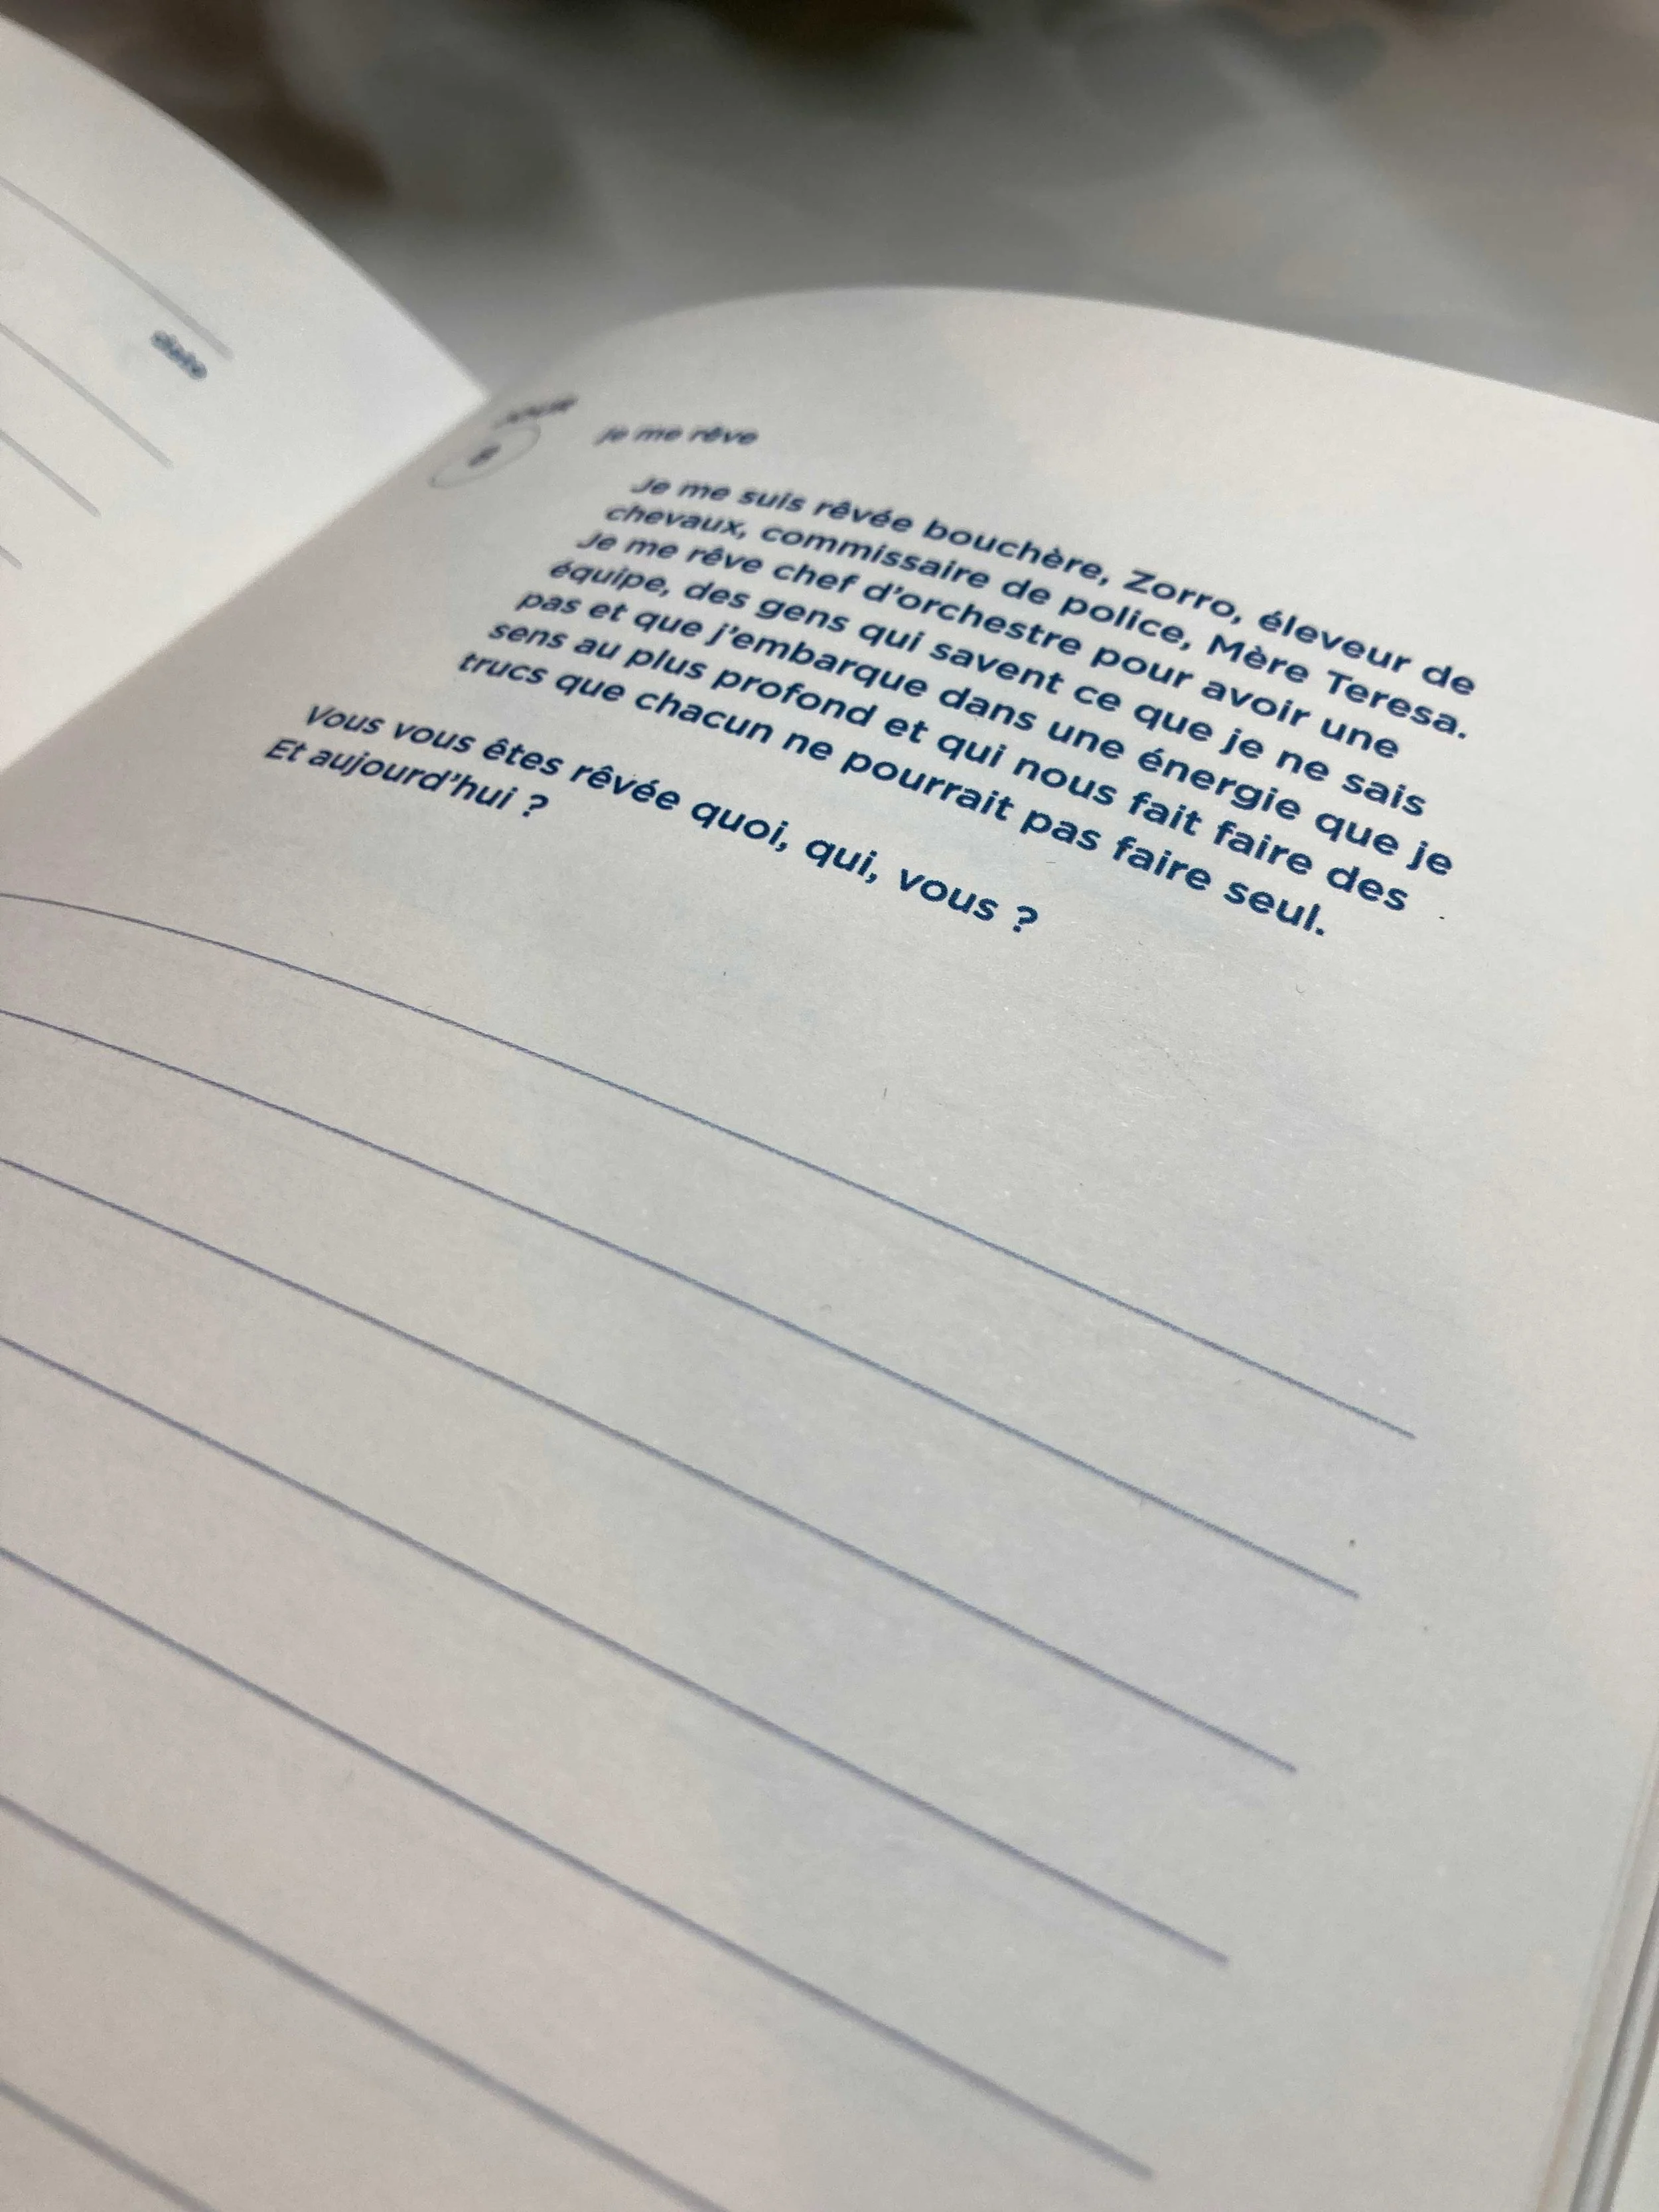 date
JOUR
8
je me rêve
Je me suis rêvée bouchère, Zorro, éleveur de
chevaux, commissaire de police, Mère Teresa.
Je me rêve chef d'orchestre pour avoir une
équipe, des gens qui savent ce que je ne sais
pas et que j'embarque dans une énergie que je
sens au plus profond et qui nous fait faire des
trucs que chacun ne pourrait pas faire seul.
Vous vous êtes rêvée quoi, qui, vous ?
Et aujourd'hui ?